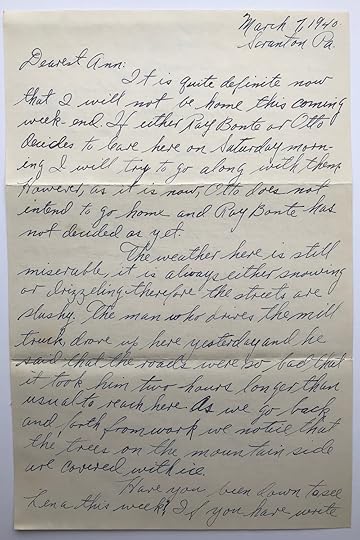 March 7, 1940
Scranton Pa.
Dearest Ann:
It is quite definite now
that I will not be home this coming
week-end. If either Ray Bonte or Otto
decides to leave here on Saturday morn-
eng I will try to go along with them.
However, as it is now, Otto does not
intend to go home and Ray Bonte has
not decided as yet.
The weather here is still
miserable, it is always either snowing
or drizzeling therefore the streets are
slushy. The man who drives the mill
truck drove up here yesterday and he
said that the roads were so bad that
it took him two hours longer than
usual to reach here. As we go back
and forth from work we notice that
the trees on the mountain side
are covered with ice.
Have you been down to see
Lena this week? If you have write